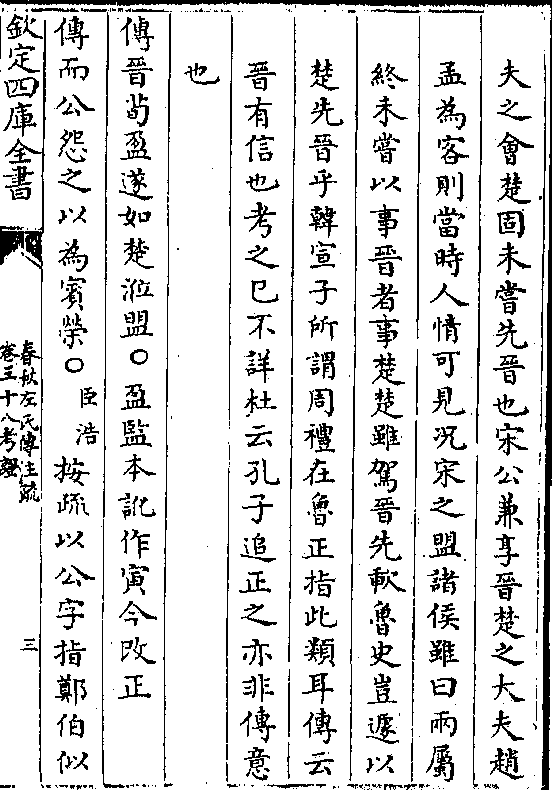 夫之會楚固未嘗先晉也宋公兼享晉楚之大夫趙
孟為客則當時人情可見况宋之盟諸侯雖曰兩屬
終未嘗以事晉者事楚楚雖駕晉先歃魯史豈遽以
楚先晉乎韓宣子所謂周禮在魯正指此類耳傳云
晉有信也考之已不詳杜云孔子追正之亦非傳意
也
傳晉荀盈遂如楚涖盟〇盈監本訛作寅今改正
傳而公怨之以為賓榮〇臣浩按疏以公字指鄭伯似
欽定四庫全書
春秋左氏傳注疏
卷三十八考證
三